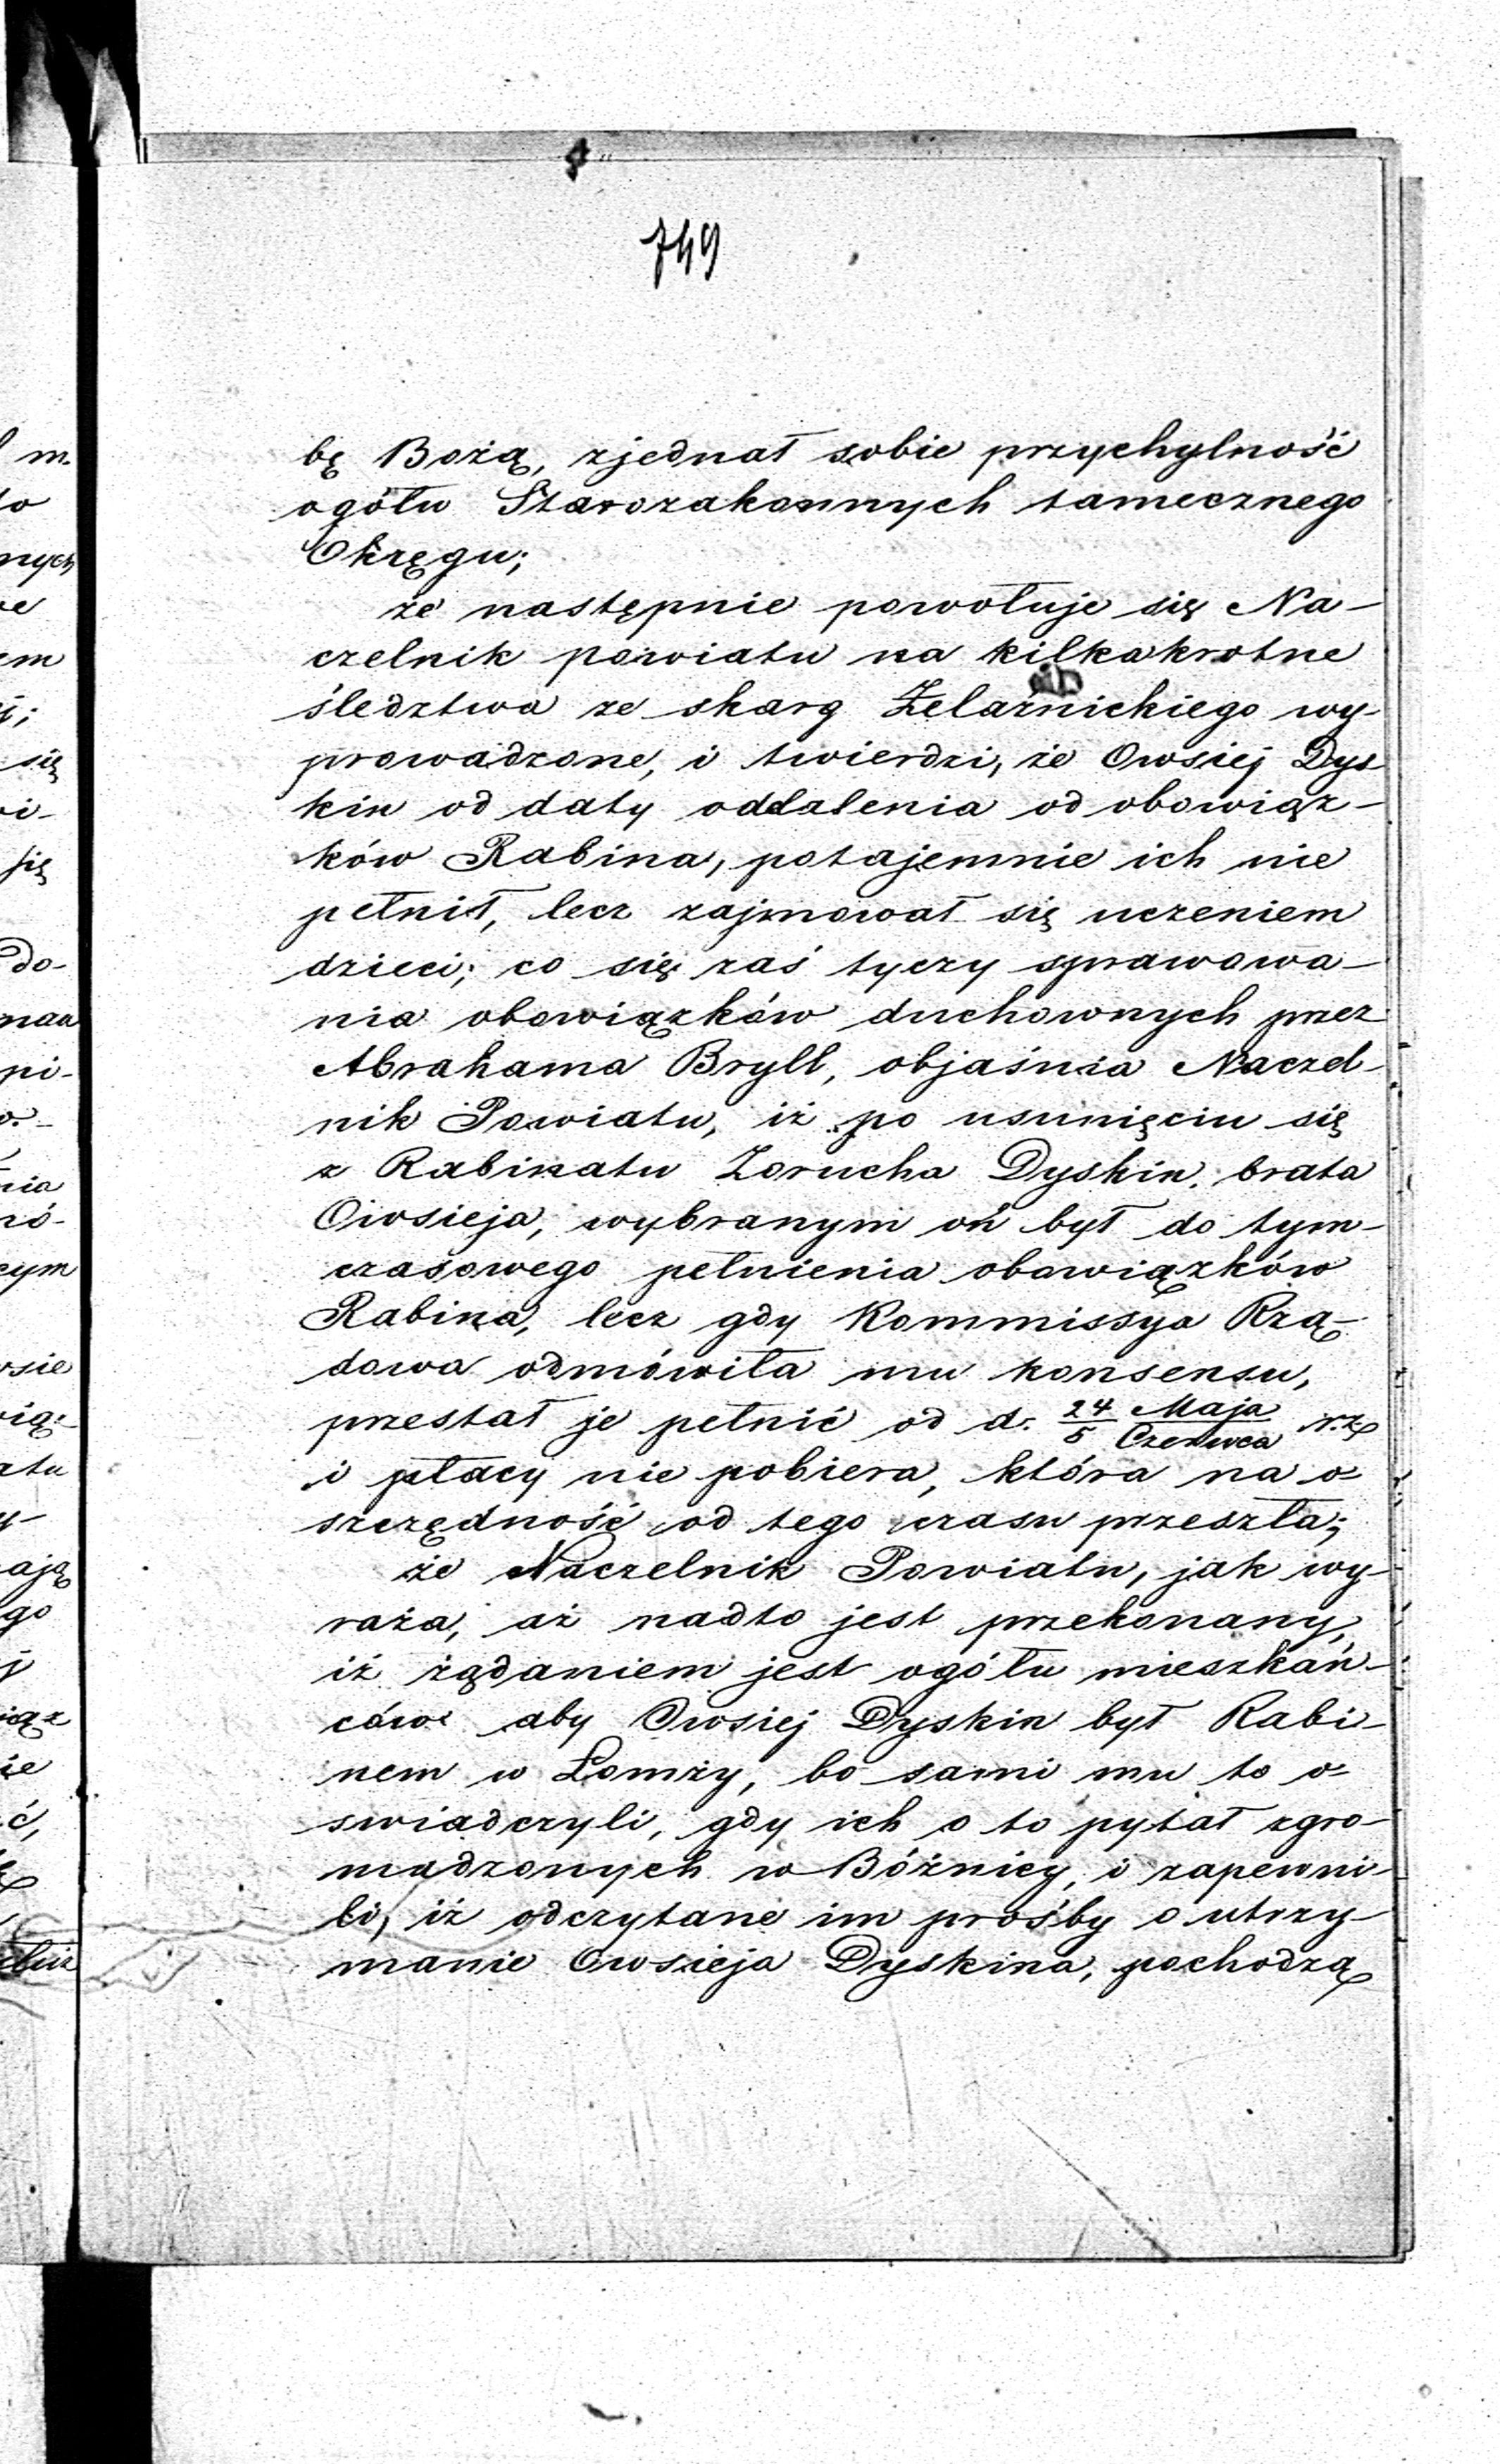 749
bę Bożą, zjednał sobie przychylność
ogółu Starozakonnych tamecznego
Okręgu;
że następnie powołuje się Na-
czelnik powiatu na kilkakrotne
śledztwa ze skarg Żelaźnickiego wy-
prowadzone, i twierdzi, że Owsiej Dys
kin od daty oddalenia od obowiąz-
ków Rabina, potajemnie ich nie
pełnił, lecz zajmował się uczeniem
dzieci; co się zaś tyczy sprawowa-
nia obowiązków duchownych przez
Abrahama Bryll, objaśnia Naczel-
nik Powiatu, iż po usunięciu się
z Rabinatu Zorucha Dyskin, brata
Owsieja, wybranym on był do tym-
czasowego pełnienia obowiązków
Rabina, lecz gdy Kommissya Rzą-
dowa odmówiła mu konsensu,
przestał je pełnić od d. 24/5 Maja/Czerwca r.z.
i płacy nie pobiera, która na o-
szczędność od tego czasu przeszła;
że Naczelnik Powiatu, jak wy-
raża, aż nadto jest przekonany,
iż żądaniem jest ogółu mieszkań-
ców aby Owsiej Dyskin był Rabi-
nem w Łomży, bo sami mu to o-
swiadczyli, gdy ich o to pytał zgro-
madzonych w Bóżnicy, i zapewni-
li, iż odczytane im prośby o utrzy-
manie Owsieja Dyskina, pochodzą